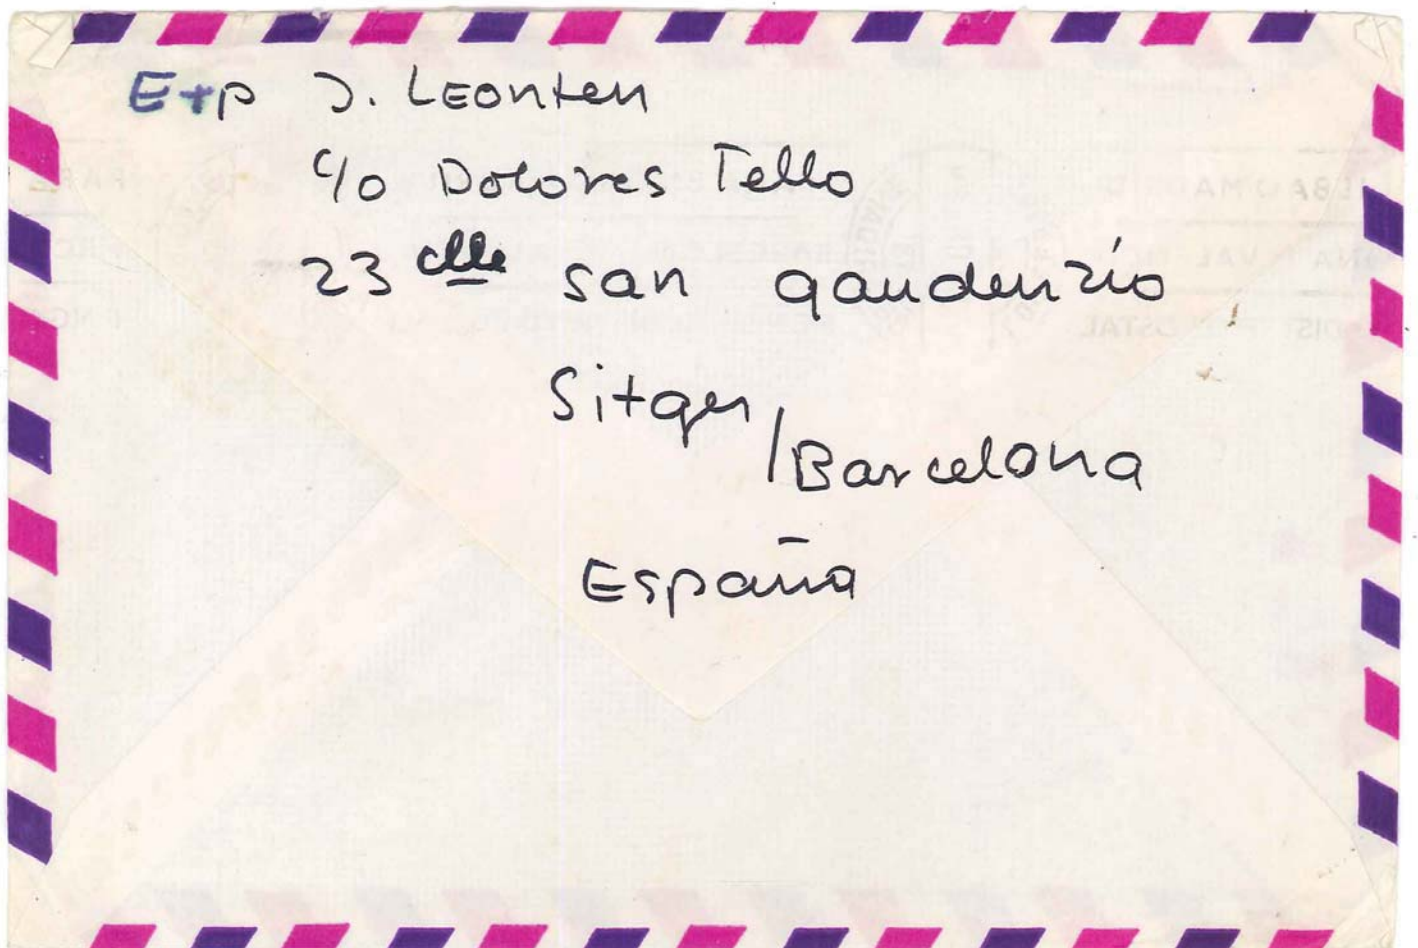 Exp J. Leonten
c/o Dolores Tello
23 clle san gaudenzio
Sitges
/Barcelona
España